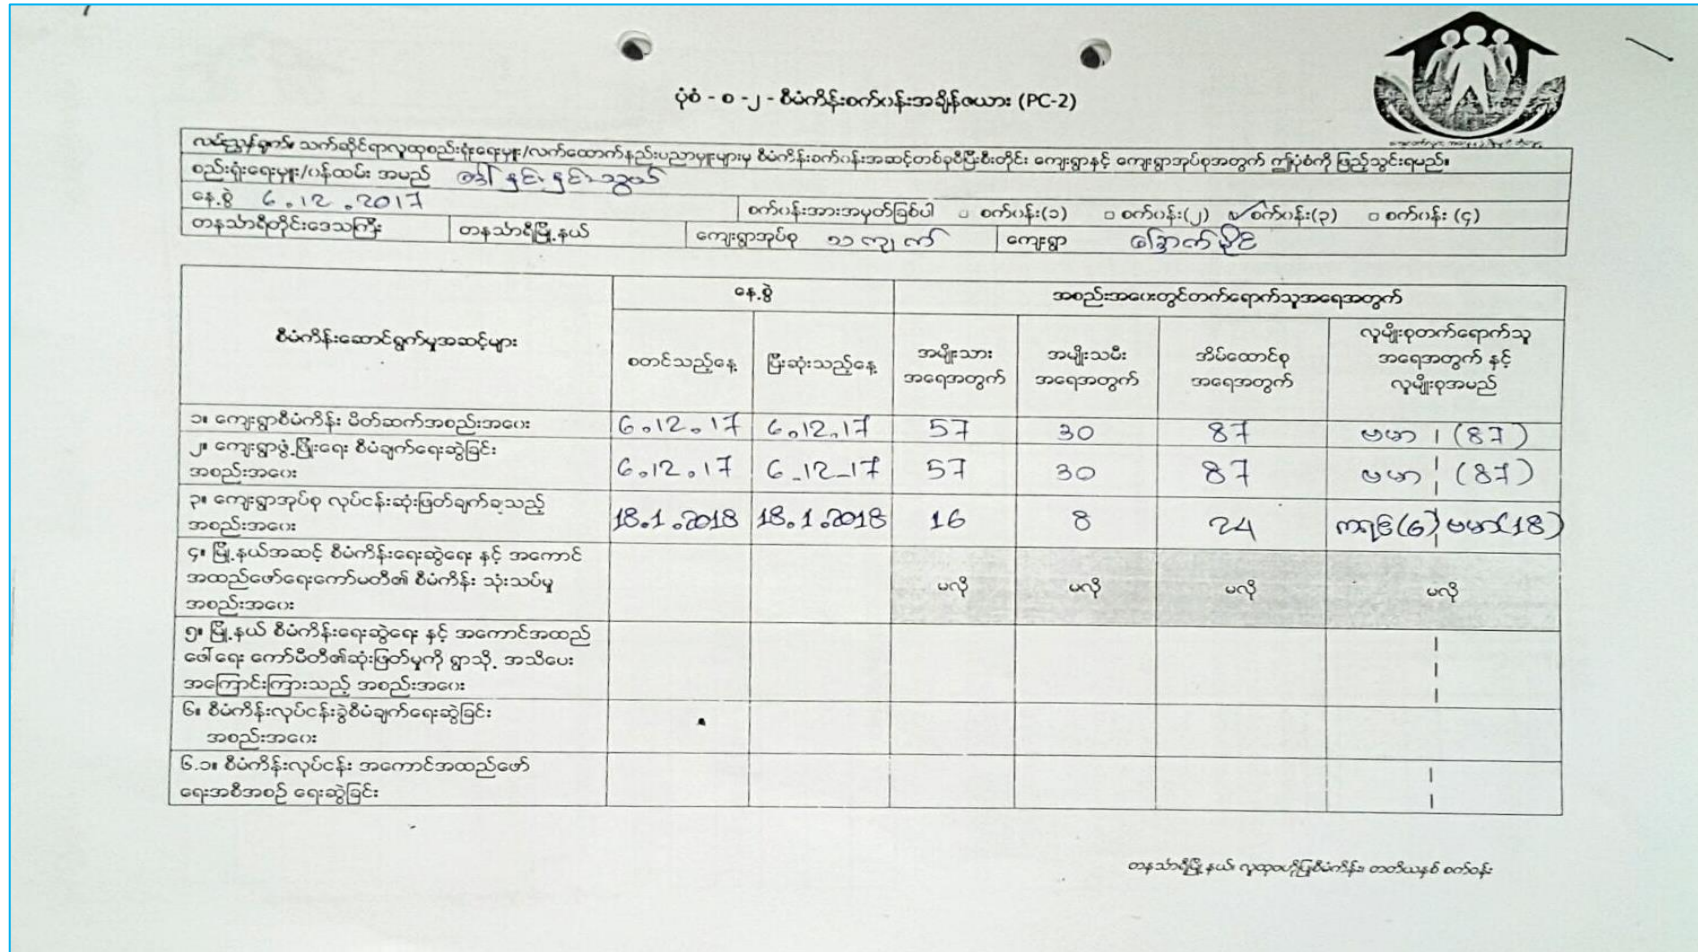 ပုံစံ - စ -၂ - စီမံကိန်းစက်ဝန်းအချိန်ဇယား (PC-2)
လမ်းညွှန်ချက်။ သက်ဆိုင်ရာလူထုစည်းရုံးရေးမှူး/လက်ထောက်နည်းပညာမှူးများမှ စီမံကိန်းစက်ဝန်းအဆင့်တစ်ခုစီပြီးစီးတိုင်း ကျေးရွာနှင့် ကျေးရွာအုပ်စုအတွက် ဤပုံစံကို ဖြည့်သွင်းရမည်။
စည်းရုံးရေးမှူး/ဝန်ထမ်း အမည် ဒေါ်နှင်းနှင်းသွယ်
နေ့စွဲ 6.12.2017 စက်ဝန်းအားအမှတ်ခြစ်ပါ □ စက်ဝန်း(၁) □ စက်ဝန်း(၂) ✓ စက်ဝန်း(၃) □ စက်ဝန်း (၄)
တနင်္သာရီတိုင်းဒေသကြီး တနင်္သာရီမြို့နယ် ကျေးရွာအုပ်စု ကျေးရွာ
စီမံကိန်းဆောင်ရွက်မှုအဆင့်များ နေ့စွဲ အစည်းအဝေးတွင်တက်ရောက်သူအရေအတွက်
စတင်သည့်နေ့ ပြီးဆုံးသည့်နေ့ အမျိုးသား အရေအတွက် အမျိုးသမီး အရေအတွက် အိမ်ထောင်စု အရေအတွက် လူမျိုးစုတက်ရောက်သူ အရေအတွက် နှင့် လူမျိုးစုအမည်
၁။ ကျေးရွာစီမံကိန်း မိတ်ဆက်အစည်းအဝေး 6.12.17 6.12.17 57 30 87 ဗမာ (87)
၂။ ကျေးရွာဖွံ့ဖြိုးရေး စီမံချက်ရေးဆွဲခြင်း
အစည်းအဝေး 6.12.17 6-12-17 57 30 87 ဗမာ (87)
၃။ ကျေးရွာအုပ်စု လုပ်ငန်းဆုံးဖြတ်ချက်ချသည့်
အစည်းအဝေး 18.1.2018 18.1.2018 16 8 24 ကရင်(6) ဗမာ(18)
၄။ မြို့နယ်အဆင့် စီမံကိန်းရေးဆွဲရေး နှင့် အကောင်
အထည်ဖော်ရေးကော်မတီ၏ စီမံကိန်း သုံးသပ်မှု မလို မလို မလို မလို
အစည်းအဝေး
၅။ မြို့နယ် စီမံကိန်းရေးဆွဲရေး နှင့် အကောင်အထည်
ဖေါ်ရေး ကော်မီတီ၏ဆုံးဖြတ်မှုကို ရွာသို့ အသိပေး
အကြောင်းကြားသည့် အစည်းအဝေး
၆။ စီမံကိန်းလုပ်ငန်းခွဲစီမံချက်ရေးဆွဲခြင်း
အစည်းအဝေး
၆.၁။ စီမံကိန်းလုပ်ငန်း အကောင်အထည်ဖော်
ရေးအစီအစဉ် ရေးဆွဲခြင်း
တနင်္သာရီမြို့နယ်၊ လူထုဗဟိုပြုစီမံကိန်း၊ တတိယနှစ် စက်ဝန်း